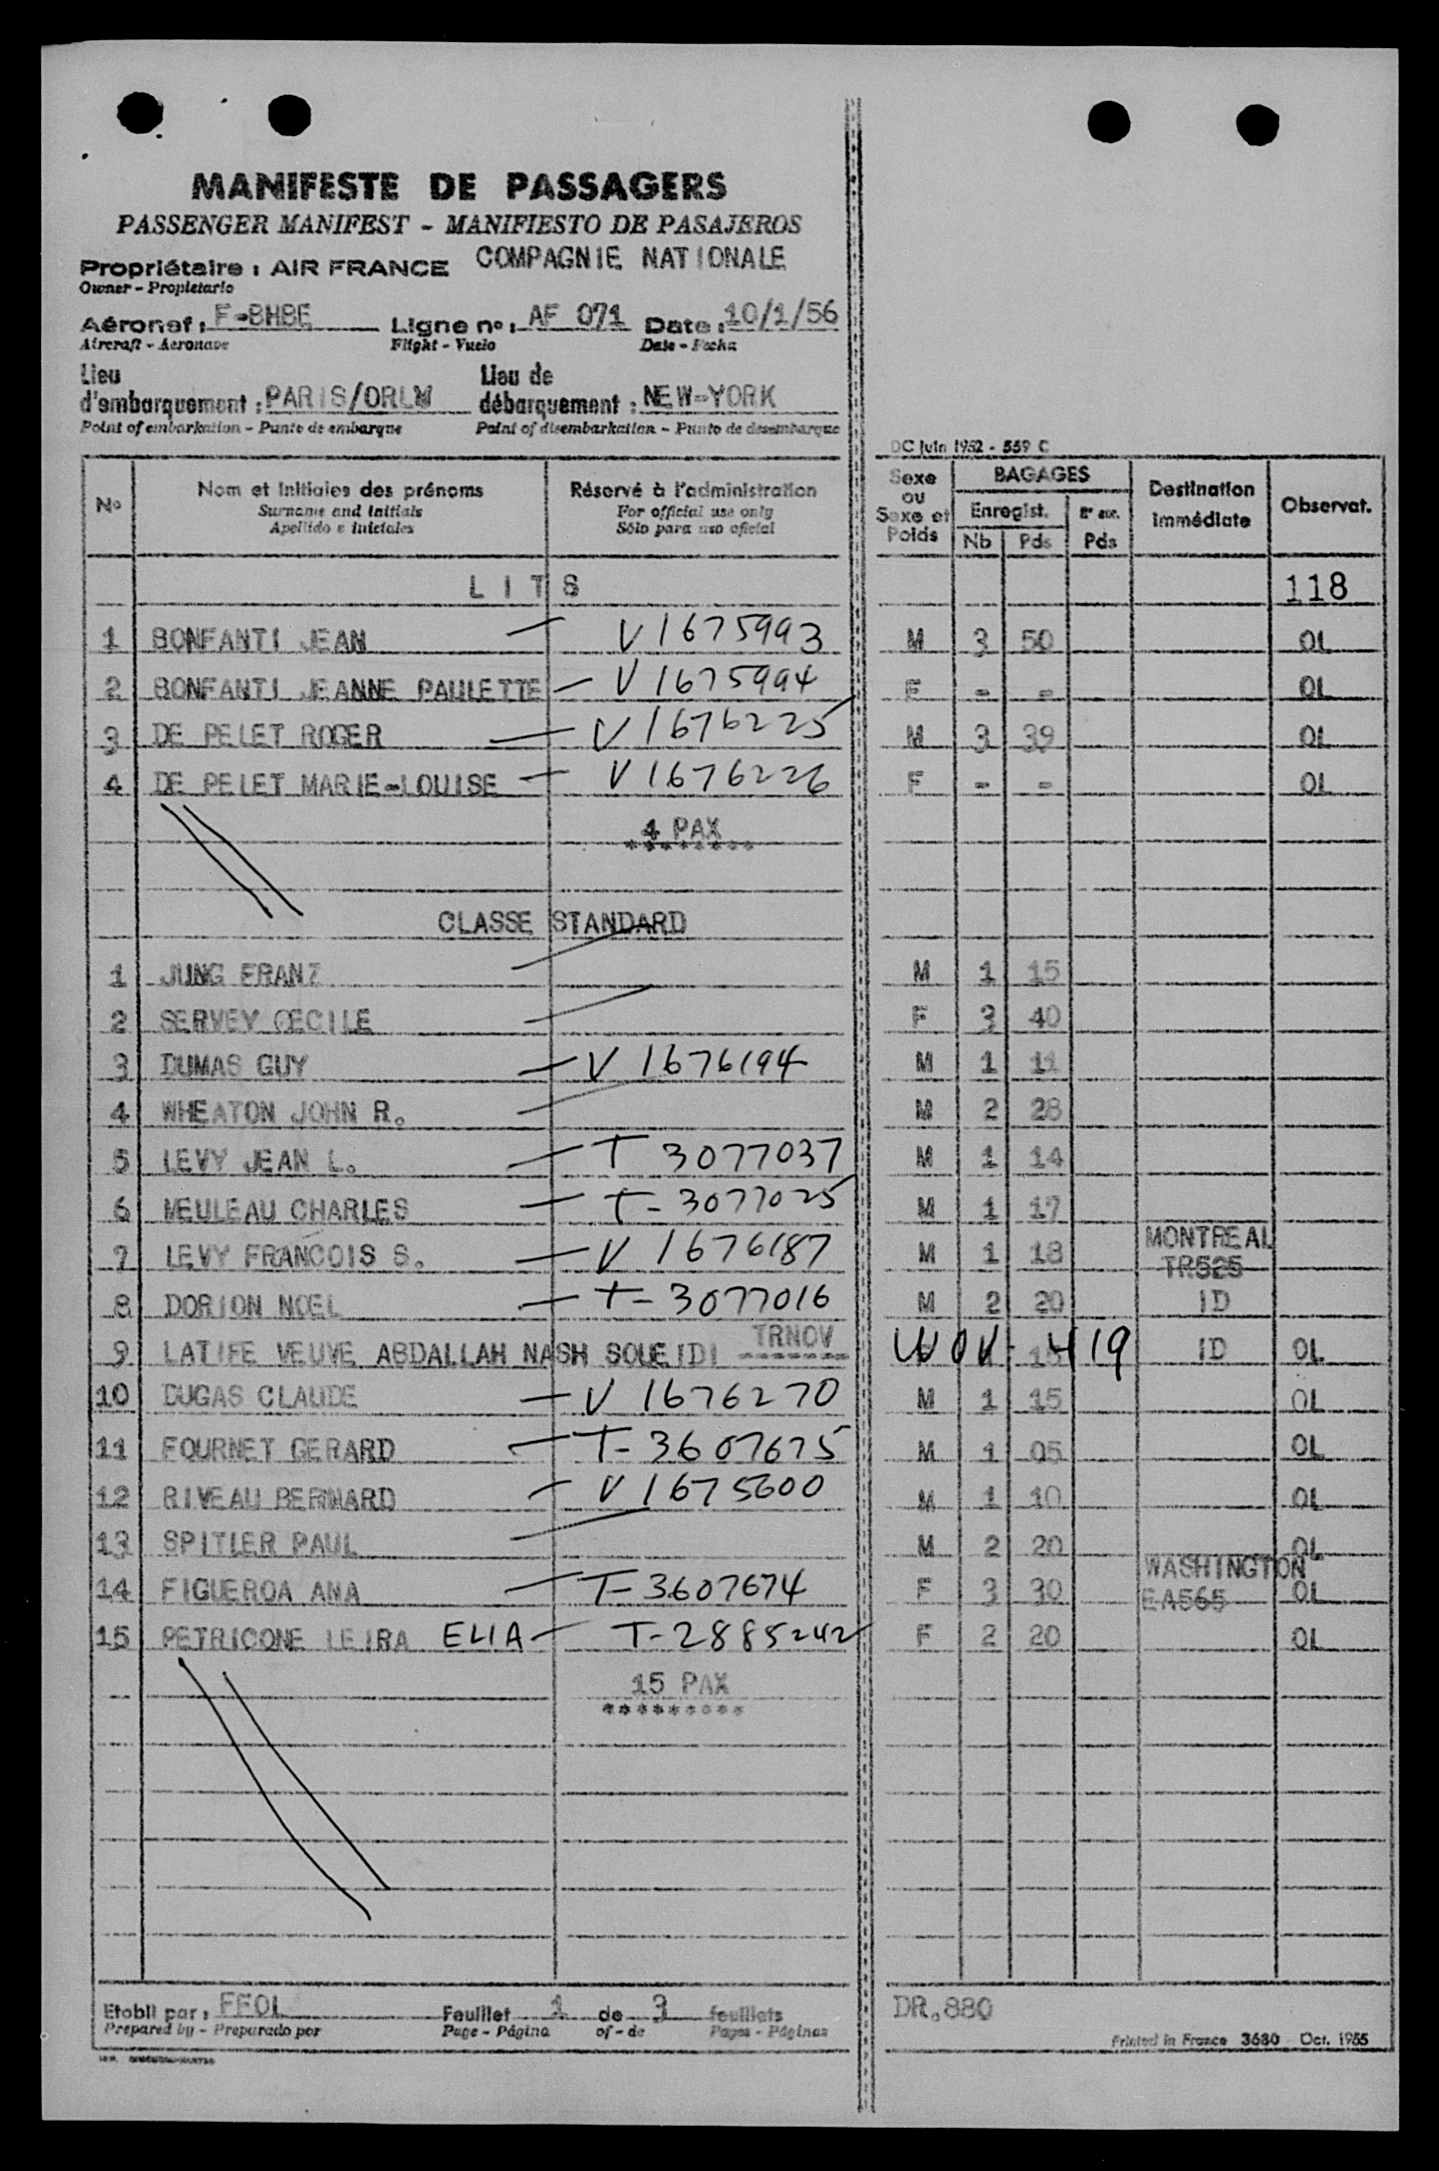 MANIFESTE DE PASSAGERS
PASSENGER MANIFEST - MANIFIESTO DE PASAJEROS
Propriétaire : AIR FRANCE COMPAGNIE NATIONALE
Owner - Propietario
Aéronef : F-BHBE Ligne no : AF 071 Date : 10/1/56
Aircraft - Aeronave Flight - Vuelo Date - Fecha
Lieu d'embarquement : PARIS/ORLY Lieu de débarquement : NEW-YORK
Point of embarkation - Punto de embarque Point of disembarkation - Punto de desembarque
DC Juin 1952 - 559 C
No Nom et initiales des prénoms Réservé à l'administration Sexe ou Sexe et Poids BAGAGES Destination immédiate Observat.
Surname and initials For official use only Enregist.
Apellido e iniciales Sólo para uso oficial Nb Pds Pds
LITS 118
1 BONFANTI JEAN — V 1675993 M 3 50 OL
2 BONFANTI JEANNE PAULETTE — V 1675994 F - - OL
3 DE PELET ROGER — V 1676225 M 3 39 OL
4 DE PELET MARIE-LOUISE — V 1676226 F - - OL
4 PAX
********
CLASSE STANDARD
1 JUNG FRANZ M 1 15
2 SERVEY CECILE F 3 40
3 DUMAS GUY — V 1676194 M 1 11
4 WHEATON JOHN R. M 2 28
5 LEVY JEAN L. — T 3077037 M 1 14
6 MEULEAU CHARLES — T- 3077025 M 1 17
7 LEVY FRANCOIS S. — V 1676187 M 1 18 MONTREAL TR525
8 DORION NOEL — T- 3077016 M 2 20 ID
9 LATIFE VEUVE ABDALLAH NASH SOUEIDI TRNOV 419 ID OL
10 DUGAS CLAUDE — V 1676270 M 1 15 OL
11 FOURNET GERARD — T- 3607675 M 1 05 OL
12 RIVEAU BERNARD — V 1675600 M 1 10 OL
13 SPITLER PAUL M 2 20 OL
14 FIGUEROA ANA — T- 3607674 F 3 30 WASHINGTON EA565 OL
15 PETRICONE LEIRA ELIA — T- 2885242 F 2 20 OL
15 PAX
*********
Etabli par : FFOL Feuillet 1 de 3 feuillets DR.880
Prepared by - Preparado por Page - Página of - de Pages - Páginas
Printed in France 3680 Oct. 1955